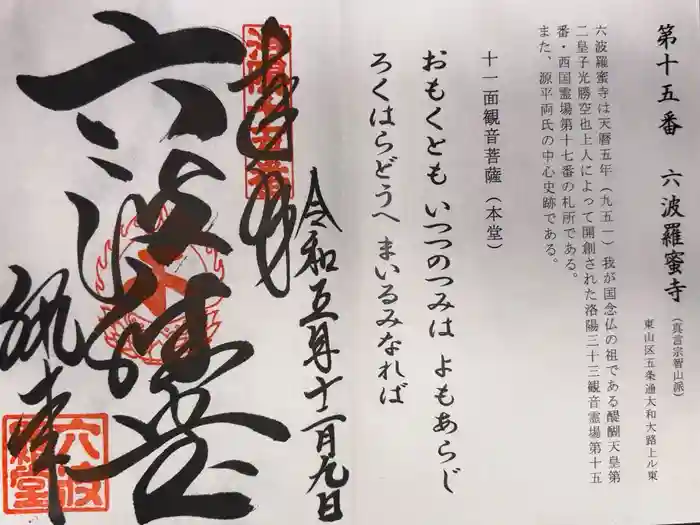 第十五番 六波羅蜜寺
(真言宗智山派)
東山区五条通大和大路上ル東
六波羅蜜寺は天暦五年(九五一)我が国念仏の祖である醍醐天皇第
二皇子光勝空也上人によって開創された洛陽三十三観音霊場第十五
番・西国霊場第十七番の札所である。
また、源平両氏の中心史跡である。
十一面観音菩薩(本堂)
おもくとも いつつのつみは よもあらじ
ろくはらどうへ まいるみなれば
令和五年十一月九日
奉拝
六波羅堂